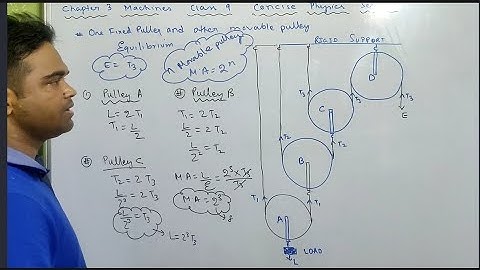 Chapter 3 Machines Class 9 Concise Physics
* One Fixed Pulley and other movable pulley
Equilibrium
E = T3
n Movable pulley
M·A = 2^n
① Pulley A
L = 2T1
T1 = L/2
# Pulley B
T1 = 2T2
L/2 = 2T2
L/2² = T2
# Pulley C
T2 = 2T3
L/2² = 2T3
L/2³ = T3
L = 2³T3
M·A = L/E = 2³ × T3/T3
M·A = 2³
8
RIGID SUPPORT
D
T3
T3
T3
E
C
T2
T2
B
T1
T1
A
LOAD
L